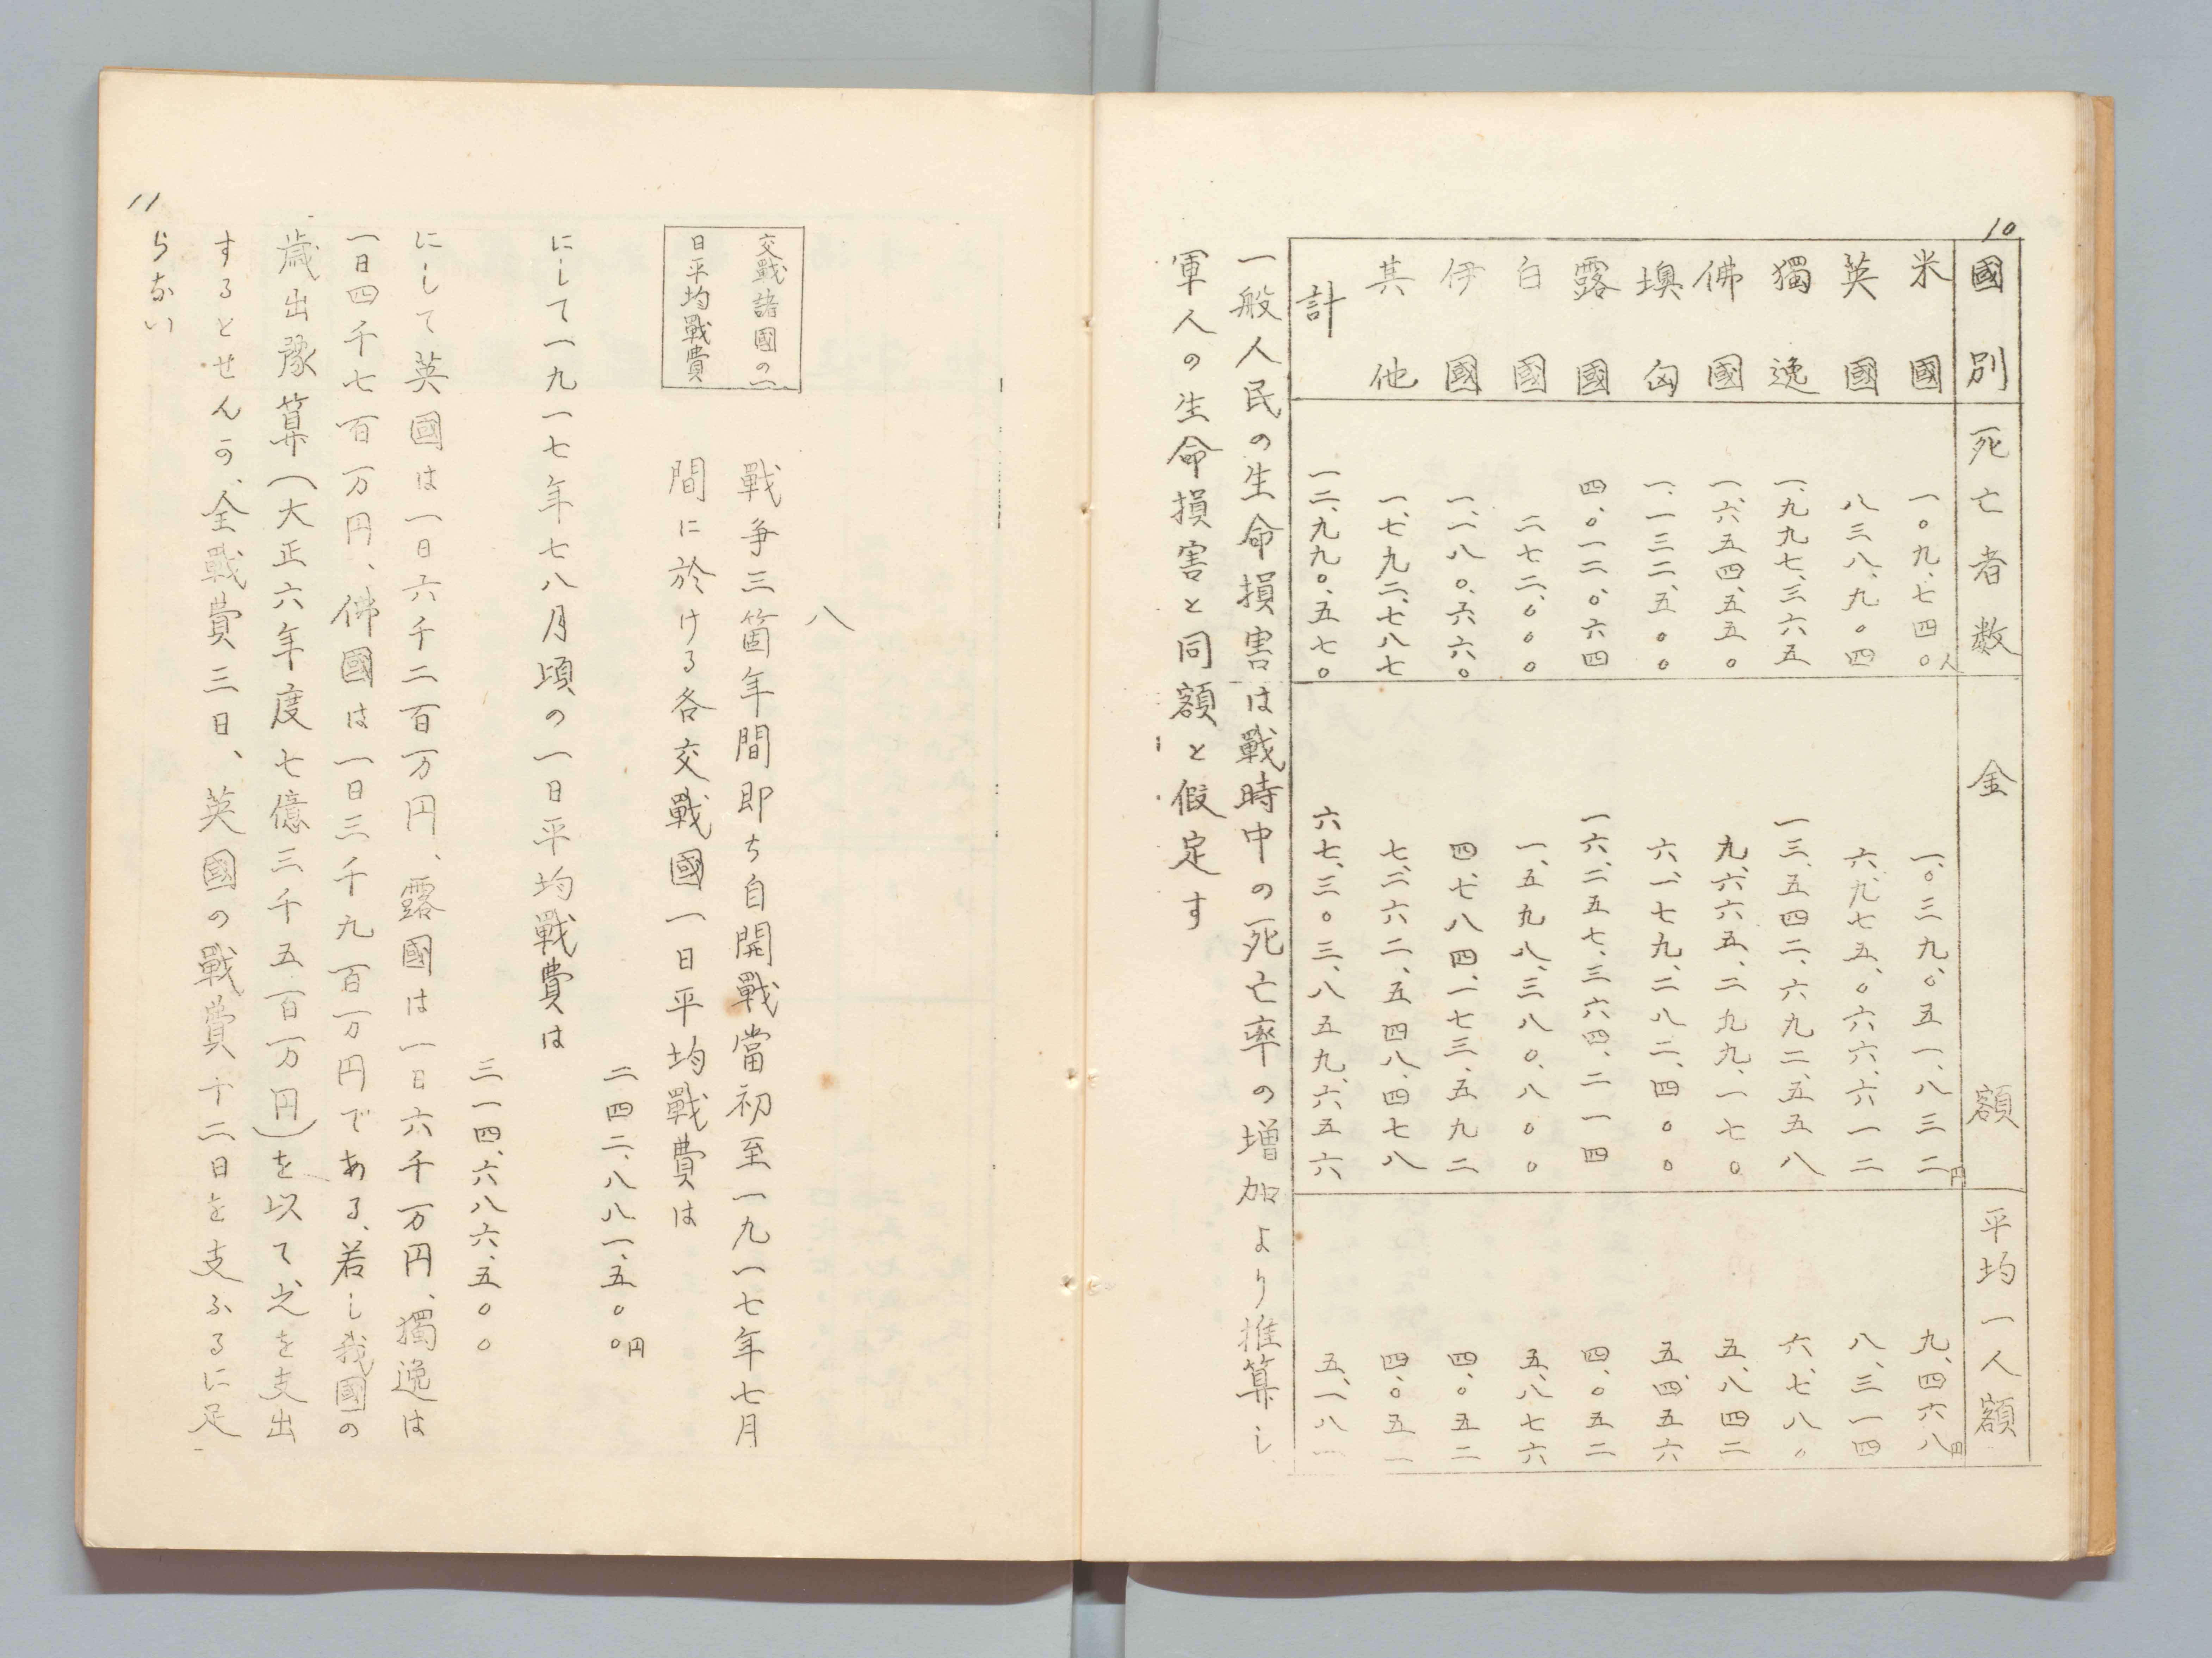 10
國別 死亡者数 金額 平均一人額
米國 一〇九、七四〇人 一、〇三九、〇五一、八三二円 九、四六八円
英國 八三八、九〇四 六、九七五、〇六六、六一二 八、三一四
獨逸 一、九九七、三六五 一三、五四二、六九二、五五八 六、七八〇
佛國 一、六五四、五五〇 九、六六五、二九九、一七〇 五、八四二
墺匈 一、一三二、五〇〇 六、一七九、二八二、四〇〇 五、四五六
露國 四、〇一二、〇六四 一六、二五七、三六四、二一四 四、〇五二
白國 二七二、〇〇〇 一、五九八、三八〇、八〇〇 五、八七六
伊國 一、一八〇、六六〇 四、七八四、一七三、五九二 四、〇五二
其他 一、七九二、七八七 七、二六二、五四八、四七八 四、〇五一
計 一二、九九〇、五七〇 六七、三〇三、八五九、六五六 五、一八一
一般人民の生命損害は戰時中の死亡率の増加より推算し
軍人の生命損害と同額と假定す
八
交戰諸國の一
日平均戰費
戰争三箇年間即ち自開戰當初至一九一七年七月
間に於ける各交戰國一日平均戰費は
二四二、八八一、五〇〇円
にして一九一七年七八月頃の一日平均戰費は
三一四、六八六、五〇〇
にして英國は一日六千二百万円、露國は一日六千万円、獨逸は
一日四千七百万円、佛國は一日三千九百万円である、若し我國の
歳出豫算(大正六年度七億三千五百一万円)を以て之を支出
するとせんか、全戰費三日、英國の戰費十二日を支ふるに足
らない
11